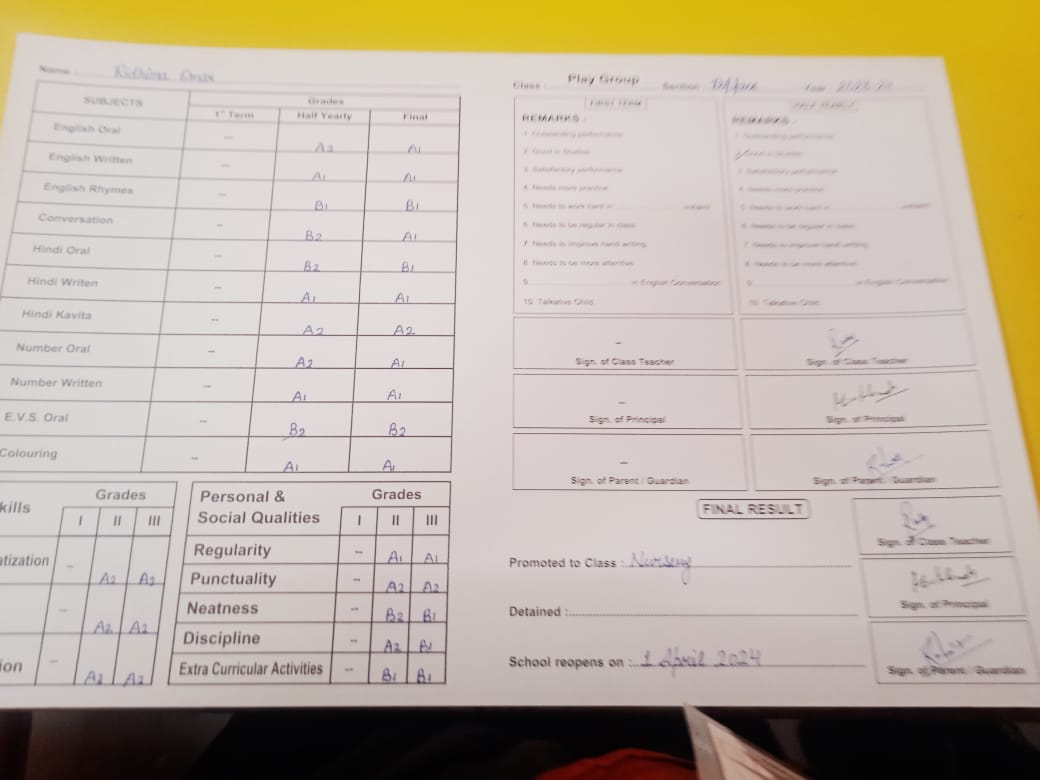 Name :
SUBJECTS Grades
1st Term Half Yearly Final
English Oral -- A2 A1
English Written -- A1 A1
English Rhymes -- B1 B1
Conversation -- B2 A1
Hindi Oral -- B2 B1
Hindi Writen -- A1 A1
Hindi Kavita -- A2 A2
Number Oral -- A2 A1
Number Written -- A1 A1
E.V.S. Oral -- B2 B2
Colouring -- A1 A
kills Grades
I II III
tization -- A2 A2
-- A2 A2
ion -- A2 A2
Personal & Social Qualities Grades
I II III
Regularity -- A1 A1
Punctuality -- A2 A2
Neatness -- B2 B1
Discipline -- A2 B1
Extra Curricular Activities -- B1 B1
Class : Play Group Section Year
FIRST TERM
REMARKS :
1. Outstanding performance
2. Good in Studies
3. Satisfactory performance
4. Needs more practice
5. Needs to work hard in subject
6. Needs to be regular in class
7. Needs to improve hand writing
8. Needs to be more attentive
9. in English Conversation
10. Talkative Child
--
Sign. of Class Teacher
--
Sign. of Principal
--
Sign. of Parent / Guardian
REMARKS :
1. Outstanding performance
2. Good in Studies
3. Satisfactory performance
4. Needs more practice
5. Needs to work hard in subject
6. Needs to be regular in class
7. Needs to improve hand writing
8. Needs to be more attentive
9. in English Conversation
10. Talkative Child
Sign. of Class Teacher
Sign. of Principal
Sign. of Parent / Guardian
FINAL RESULT
Promoted to Class : Nursery
Detained :
School reopens on : 1 April 2024
Sign. of Class Teacher
Sign. of Principal
Sign. of Parent / Guardian